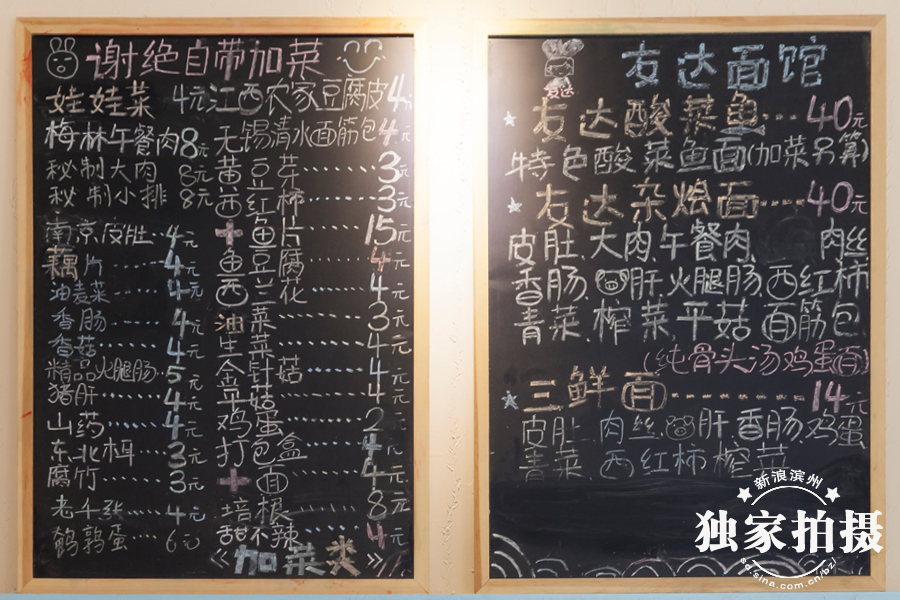 谢绝自带加菜
娃娃菜 4元
梅林午餐肉8元
秘制大肉 8元
秘制小排 8元
南京皮肚...4元
藕片......4元
油麦菜....4元
香肠......4元
香菇......4元
精品火腿肠...5元
猪肝......4元
山药......4元
东北木耳...3元
腐竹......3元
老千张....4元
鹌鹑蛋...6元
江西农家豆腐皮4元
无锡清水面筋包4元
黄豆芽......3元
西红柿......3元
+鱼片......15元
鱼豆腐......4元
西兰花......4元
油菜......3元
生菜......4元
金针菇......4元
平菇......4元
鸡蛋......2元
打包盒......4元
+面......4元
培根......8元
甜不辣......4元
《加菜类》
友达
友达面馆
友达酸菜鱼...40元
特色酸菜鱼面(加菜另算)
友达杂烩面....40元
皮肚、大肉、午餐肉、肉丝
香肠、肝、火腿肠、西红柿
青菜、榨菜、平菇、面筋包
(纯骨头汤鸡蛋面)
三鲜面........14元
皮肚、肉丝、肝、香肠、鸡蛋
青菜、西红柿、榨菜
新浪滨州
独家拍摄
sd.sina.com.cn/bz/